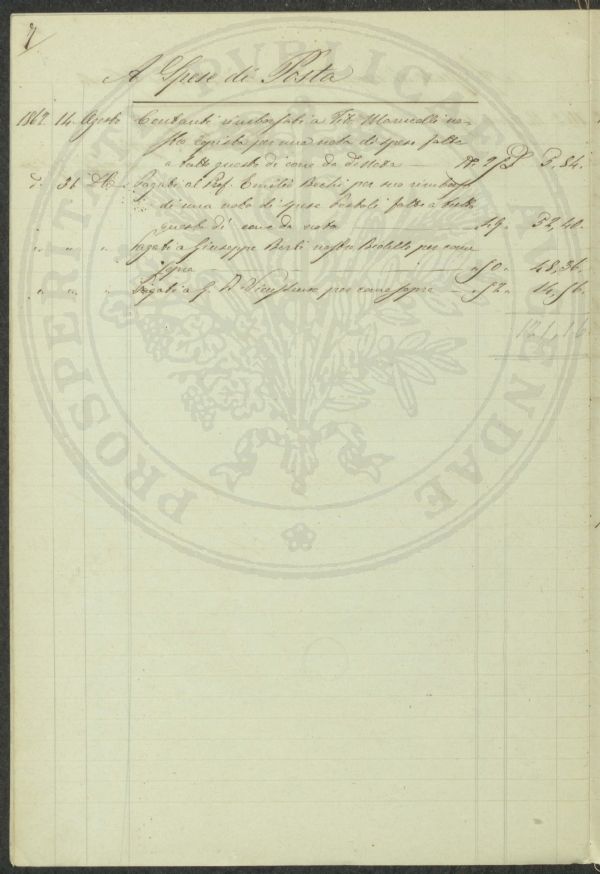 A Spese di Posta
1862. 14. Agosto Contanti rimborsati a Tito Marucelli no-
stro Copista per una nota di spese fatte
a tutto questo di come da distinta
D. 31 Pagati al Prof. Emilio Bechi per suo rimborso
di una nota di spese Postali fatte a tutto
questo di come da nota 49. 52,40.
" " " Pagati a Giuseppe Berti nostro Bidello per come
sopra 50. 48,36.
" " " Pagati a G. P. Vieusseux per come sopra 52. 14,56.
121,16
PROSPERITATI PVBLICAE AVGENDAE